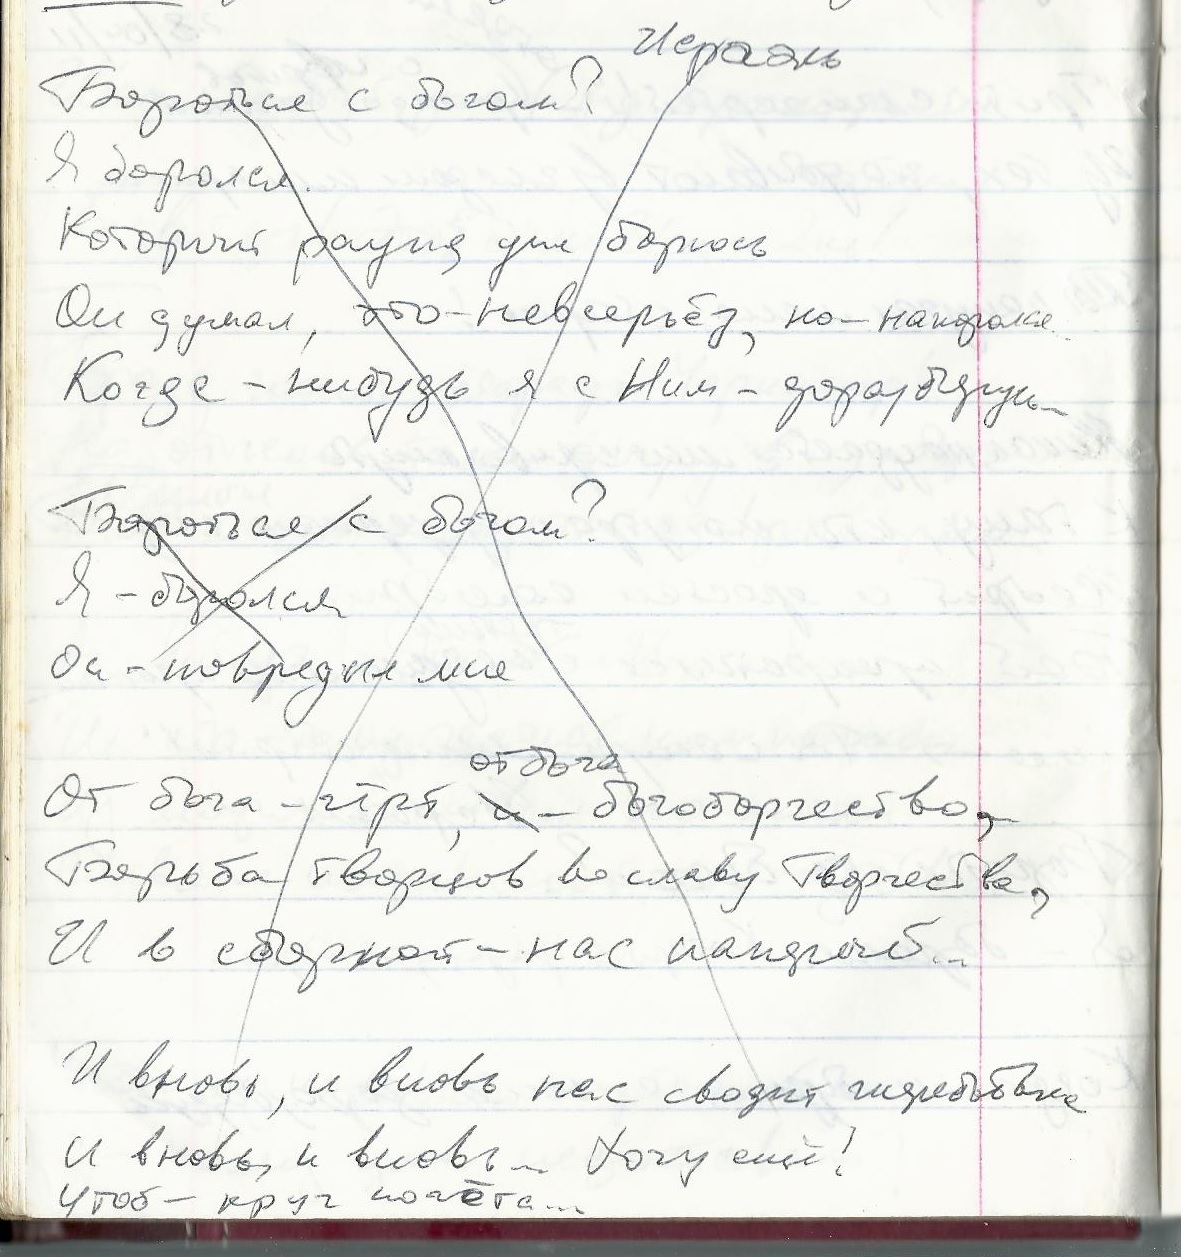 Израэль
Бороться с богом?
Я боролся.
Который раунд уже борюсь
Он думал, это - невсерьёз, но - напоролся
Когда - нибудь я с Ним - дораз берусь...
Бороться с богом?
Я - боролся
Он - повредил мне
отбога
От бога - гёрт, и - богоборчество,
Борьба творцов во славу Творчества,
И в сборной - нас
И вновь, и вновь нас сводит жеребьёвка
И вновь, и вновь... Хочу ещё!
Чтоб - круг почёта...